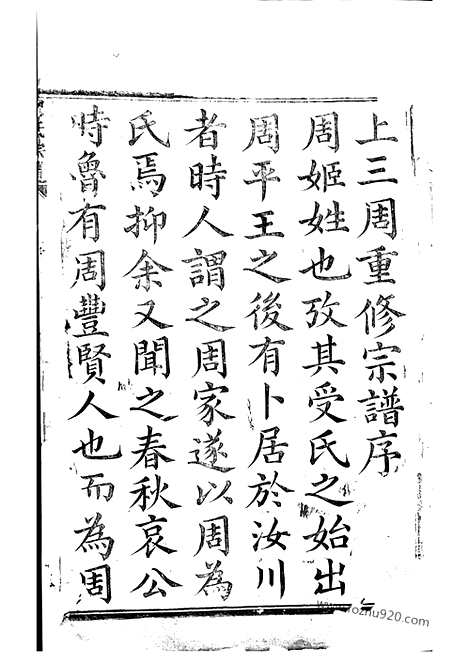 上三周重修宗譜序
周姬姓也攷其受氏之始出
周平王之後有卜居於汝川
者時人謂之周家遂以周為
氏焉抑余又聞之春秋哀公
時魯有周豐賢人也而為周
www.fozhu920.com